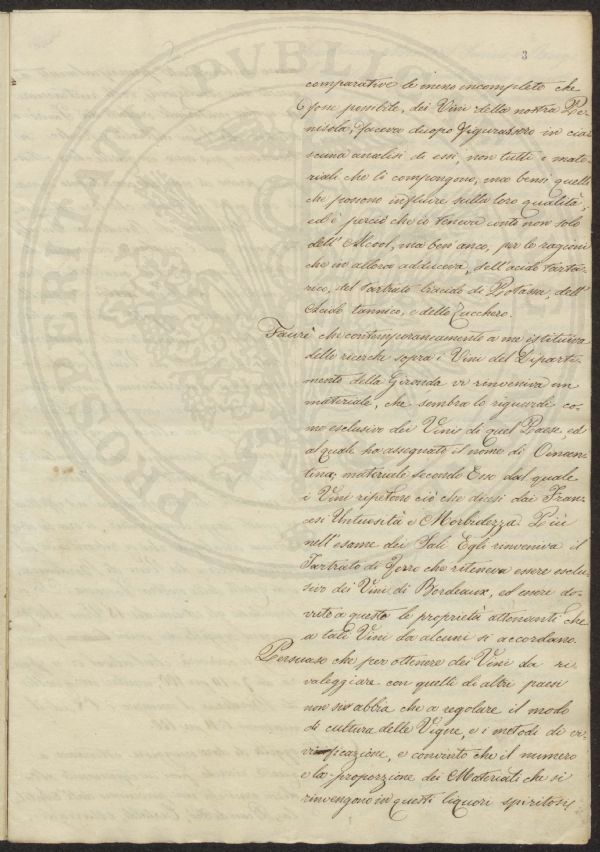 3
comparative le meno incomplete che
fosse possibile, dei Vini della nostra Pe-
nisola, faceva duopo figurassero in cias
scuna analisi di essi, non tutti i mate-
riali che li compongono, ma bensì quelli
che possono influire sulla loro qualità,
ed è perciò che io teneva conto non solo
dell'Alcool, ma ben anco, per le ragioni
che in allora adduceva, dell'acido tarta-
rico, del tartrato bracido di Potassa, dell'
Acido tannico, e dello Zucchero.
Faurè che contemporaneamente a me istituiva
delle ricerche sopra i Vini del Diparti-
mento della Gironda vi rinveniva un
materiale, che sembra lo riguardi co-
me esclusivo dei Vini di quel Paese, ed
al quale ha assegnato il nome di Oenan
tina, materiale secondo Esso dal quale
i Vini ripetono ciò che dicesi dai Fran-
cesi Untuosità e Morbidezza. Più
nell'esame dei Sali Egli rinveniva il
Tartrato di Ferro che riteneva essere esclu-
sivo dei Vini di Bordeaux, ed essere do-
vuto a questo le proprietà attenuanti che
a tali Vini da alcuni si accordano.
Persuaso che per ottenere dei Vini da ri-
valeggiare con quelli di altri paesi
non si abbia che a regolare il modo
di cultura delle Vigne, e i metodi di vi-
nificazione, e convinto che il numero
e la proporzione dei Materiali che si
rinvengono in questi liquori spiritosi,
PROSPERITATI PVBLIC